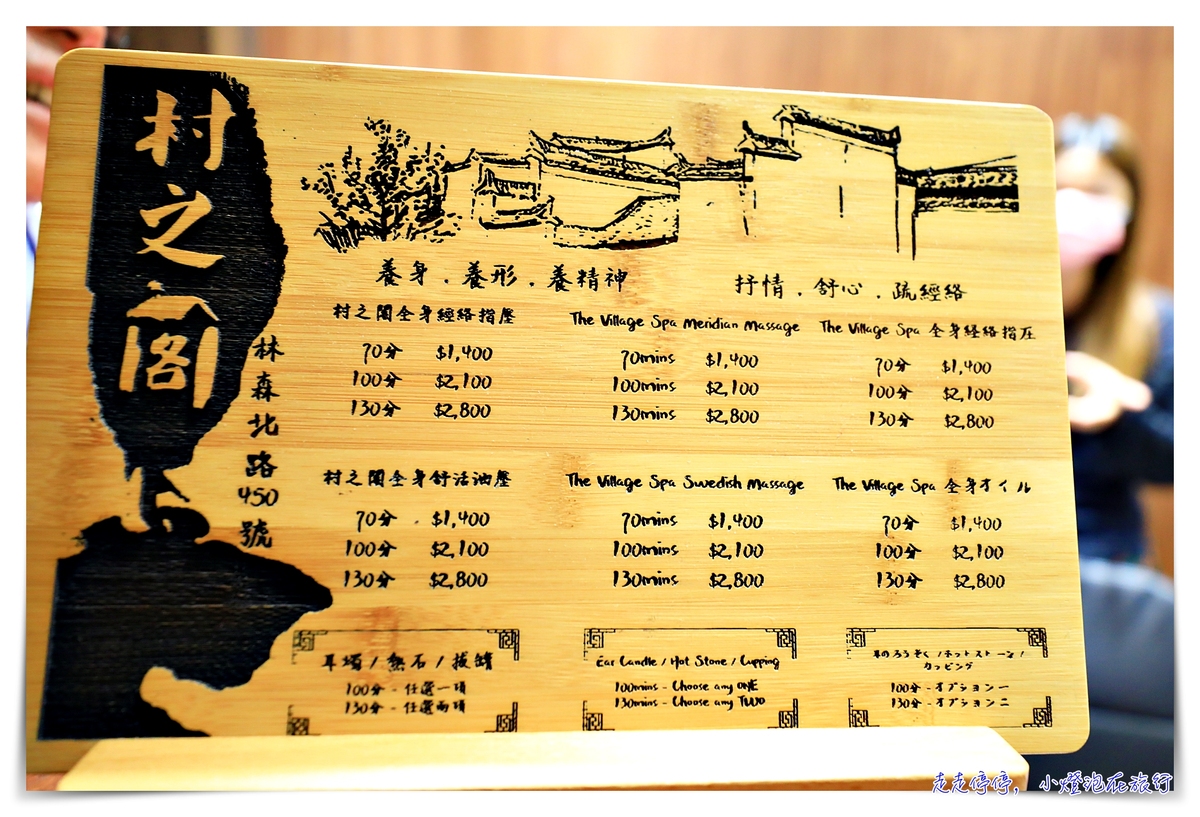 村之閣
林森北路450號
養身．養形．養精神
抒情．舒心．疏經絡
村之閣全身經絡指壓
70分 $1,400
100分 $2,100
130分 $2,800
The Village Spa Meridian Massage
70mins $1,400
100mins $2,100
130mins $2,800
The Village Spa 全身経絡指圧
70分 $1,400
100分 $2,100
130分 $2,800
村之閣全身舒活油壓
70分 $1,400
100分 $2,100
130分 $2,800
The Village Spa Swedish Massage
70mins $1,400
100mins $2,100
130mins $2,800
The Village Spa 全身オイル
70分 $1,400
100分 $2,100
130分 $2,800
耳燭 / 熱石 / 拔罐
100分 - 任選一項
130分 - 任選兩項
Ear Candle / Hot Stone / Cupping
100mins - Choose any ONE
130mins - Choose any TWO
耳のろうそく / ホットストーン /
カッピング
100分 - オプション一
130分 - オプション二
走走停停，小燈泡在旅行